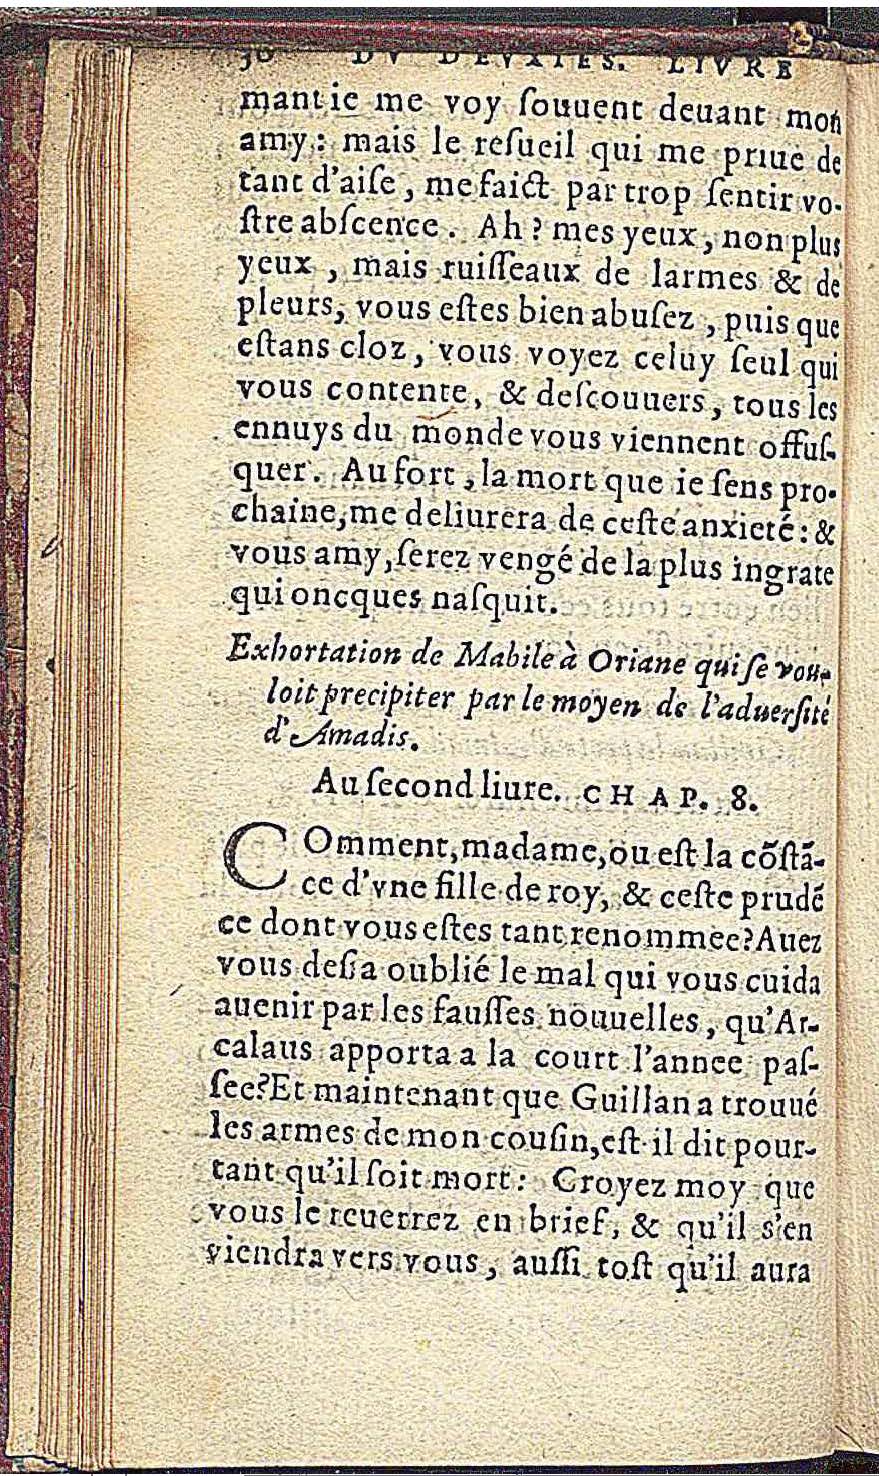 DV DEVXIES. LIVRE
mant ie me voy ſouuent deuant mon
amy : mais le reſueil qui me priue de
tant d'aiſe , me faict par trop ſentir vo-
ſtre abſcence . Ah ? mes yeux , non plus
yeux , mais ruiſſeaux de larmes & de
pleurs, vous eſtes bien abuſez , puis que
eſtans cloz , vous voyez celuy ſeul qui
vous contente, & deſcouuers, tous les
ennuys du monde vous viennent offuſ-
quer. Au fort , la mort que ie ſens pro-
chaine, me deliurera de ceſte anxieté : &
vous amy, ſerez vengé de la plus ingrate
qui oncques naſquit.
Exhortation de Mabile à Oriane qui ſe vou-
loit precipiter par le moyen de l'aduerſité
d'Amadis.
Au ſecond liure. CHAP. 8.
COmment, madame, ou eſt la cõſtã-
ce d'vne fille de roy, & ceſte prudẽ
ce dont vous eſtes tant renommee? Auez
vous deſia oublié le mal qui vous cuida
auenir par les fauſſes nouuelles, qu'Ar-
calaus apporta a la court l'annee paſ-
ſee? Et maintenant que Guillan a trouué
les armes de mon couſin, eſt il dit pour-
tant qu'il ſoit mort : Croyez moy que
vous le reuerrez en brief, & qu'il s'en
viendra vers vous , auſſi toſt qu'il aura